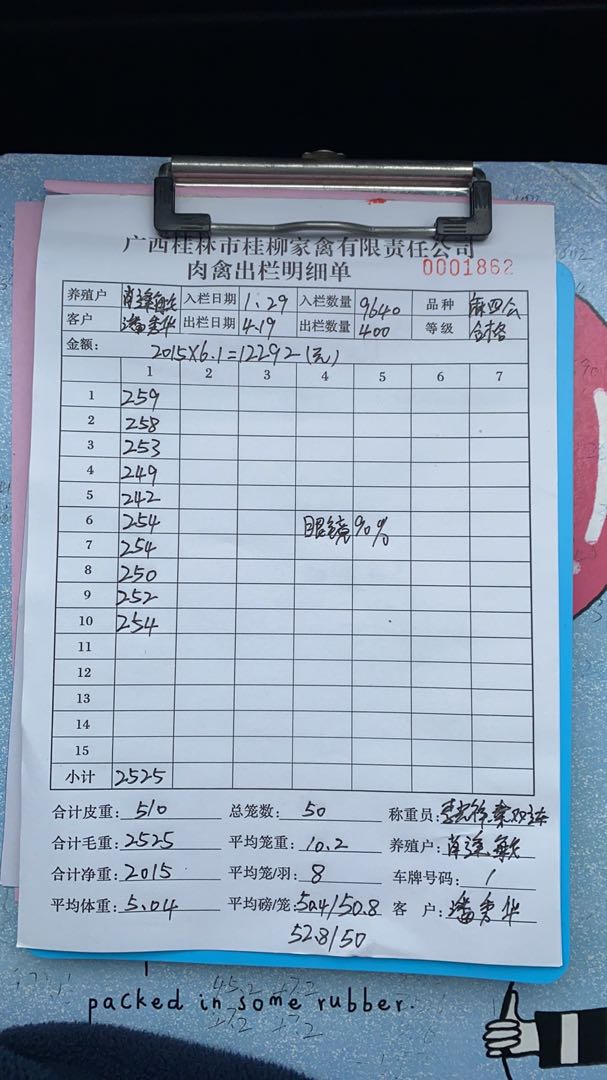 广西桂林市桂柳家禽有限责任公司
肉禽出栏明细单 0001862
养殖户 入栏日期 1.29 入栏数量 9640 品种 麻四会
客户 潘秀华 出栏日期 4.19 出栏数量 400 等级 合格
金额: 2015×6.1=12292(元)
1 2 3 4 5 6 7
1 259
2 258
3 253
4 249
5 242
6 254 眼镜90%
7 254
8 250
9 252
10 254
11
12
13
14
15
小计 2525
合计皮重: 510 总笼数: 50 称重员:
合计毛重: 2525 平均笼重: 10.2 养殖户:
合计净重: 2015 平均笼/羽: 8 车牌号码: /
平均体重: 5.04 平均磅/笼: 50.4/50.8 客户: 潘秀华
52.8/50
packed in some rubber.